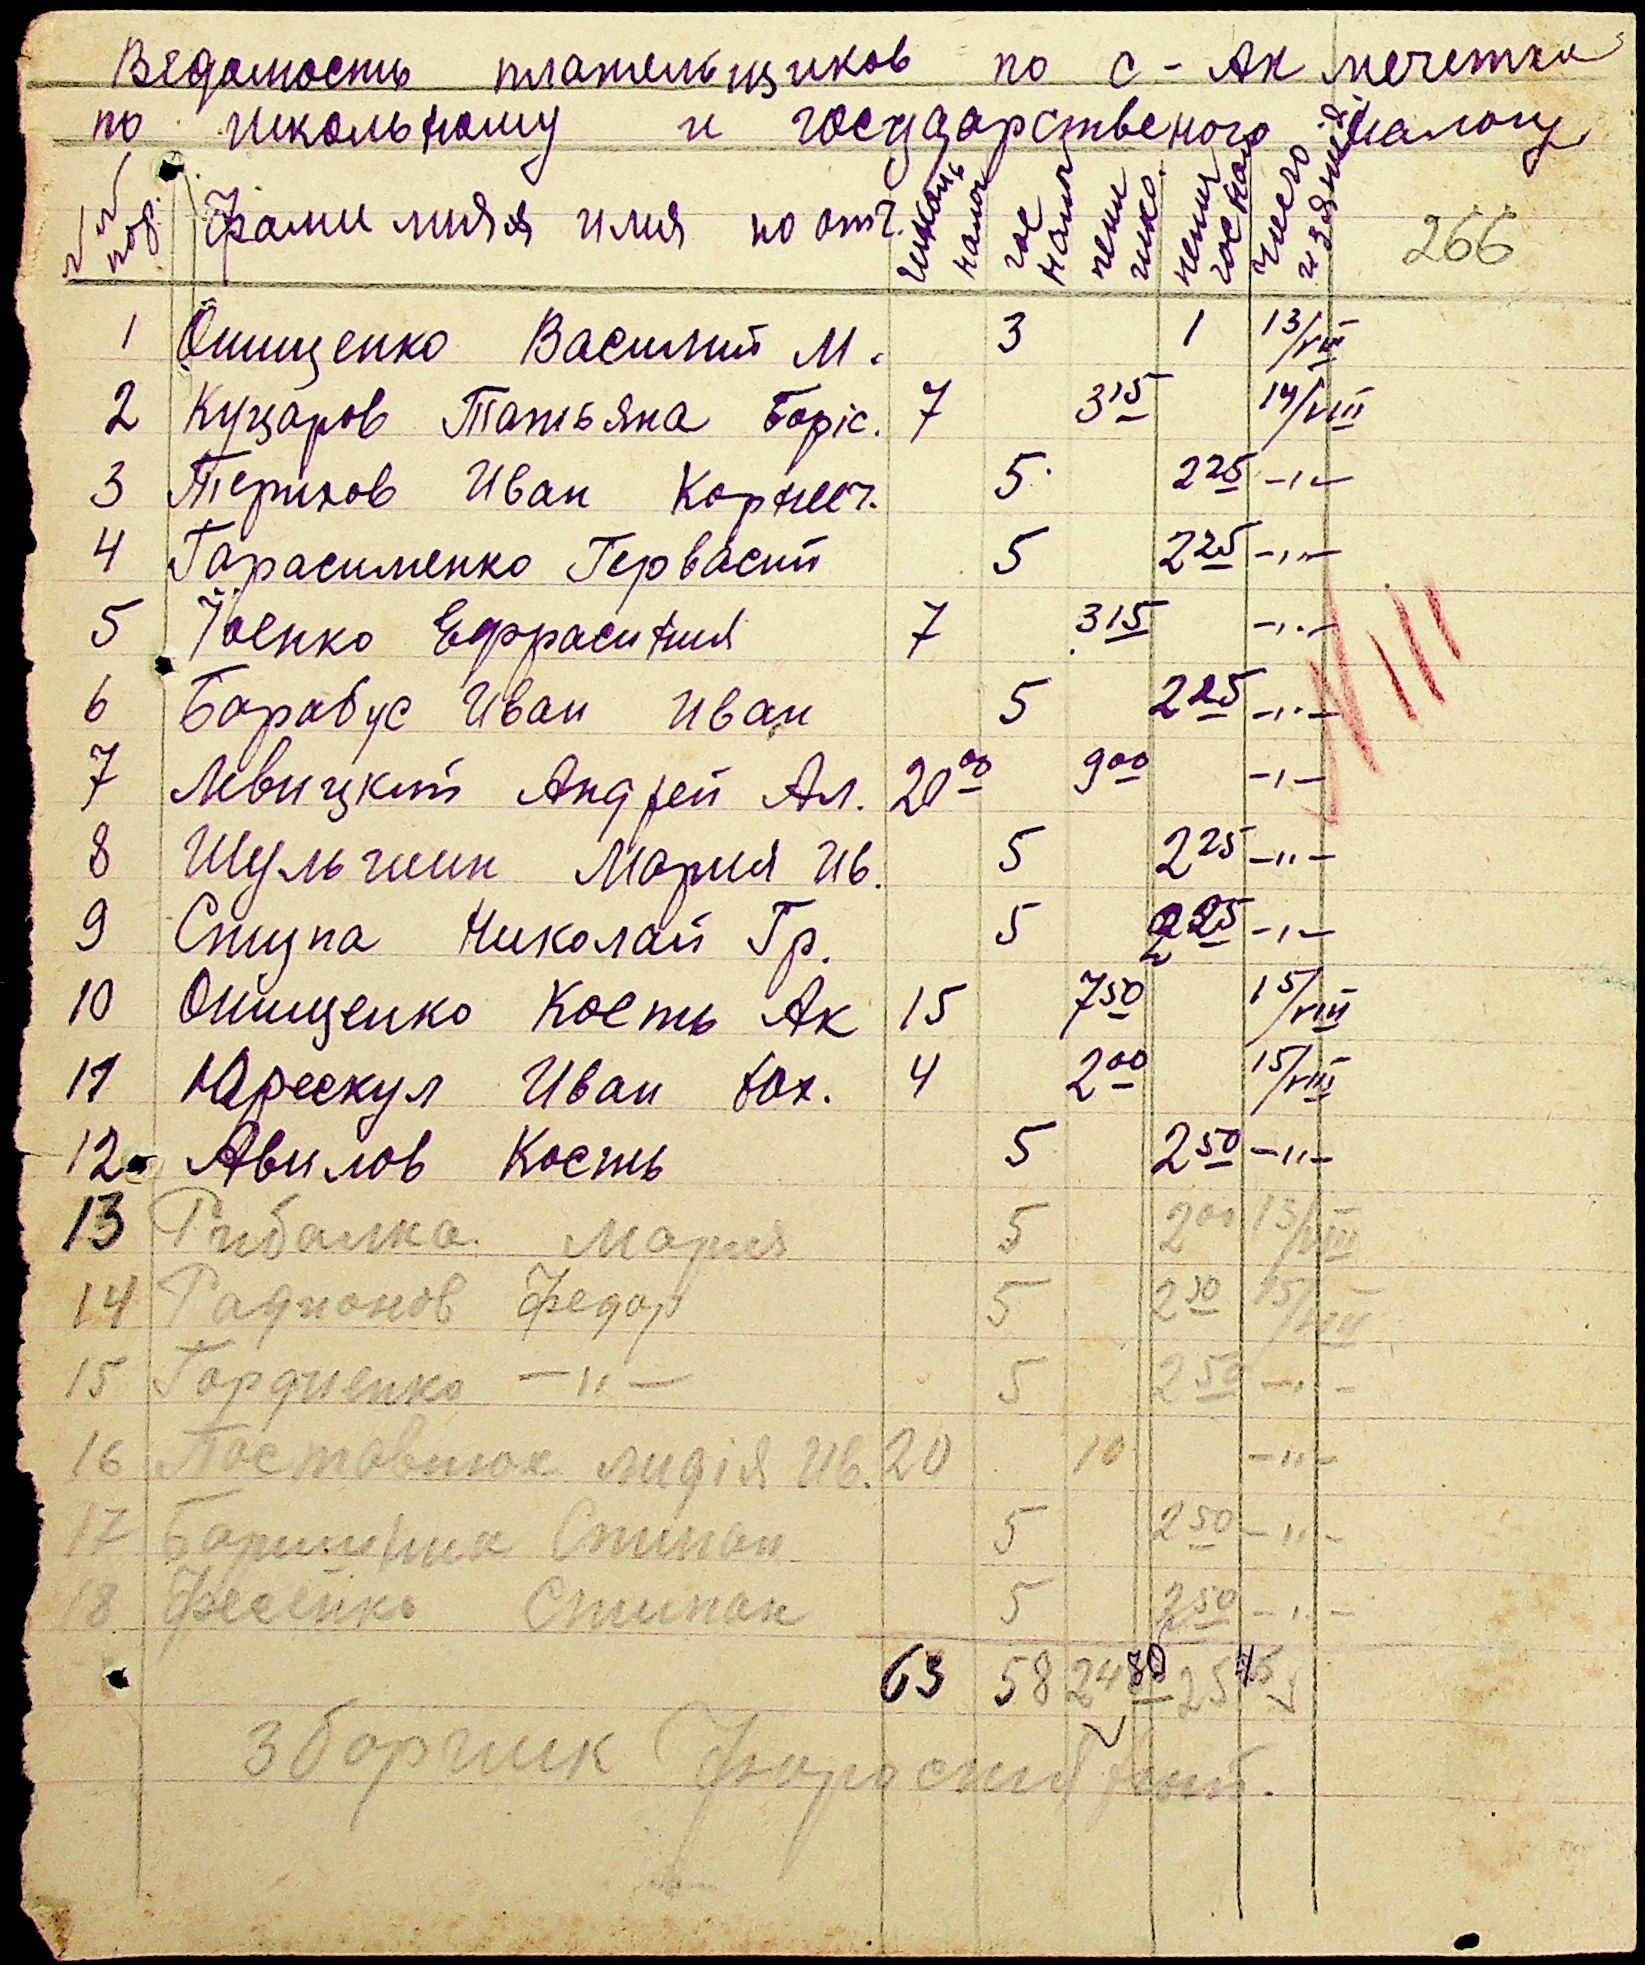 Ведомость плательщиков по с-Ак мечетка
по школьному и государственого налогу
№№ пор. Фамилияя имя по отч. школь налог гос налог пени шко. пени гос нал число
266
1 Онищенко Василий М. 3 1 13/VIII
2 Куцаров Татьяна Боріс. 7 3 15 14/VIII
3 Терихов Иван Корнеич. 5 2 25 -"-
4 Гарасименко Герваси 5 2 25 -"-
5 Ефрасиния 7 3 15 -"-
6 Барабус Иван Иван 5 2 25 -"-
7 Левицкий Андрей Ал. 20 00 9 00 -"-
8 Шульгиин Мария Ив. 5 2 25 -"-
9 Ступа Николай Гр. 5 2 25 -"-
10 Онищенко Кость Ак 15 7 50 15/VIII
11 Юрескул Иван 4 2 00 15/VIII
12 Авилов Кость 5 2 50 -"-
13 Рибалка Мария 5 2 00 13/VIII
14 Радионов Федор 5 2 50 15/VIII
15 Гордиенко -"- 5 2 50 -"-
16 Лидія Ив. 20 10 -"-
17 Стипан 5 2 50 -"-
18 Фесенко Стипан 5 2 50 -"-
63 58 24 80 25 45
Зборчик